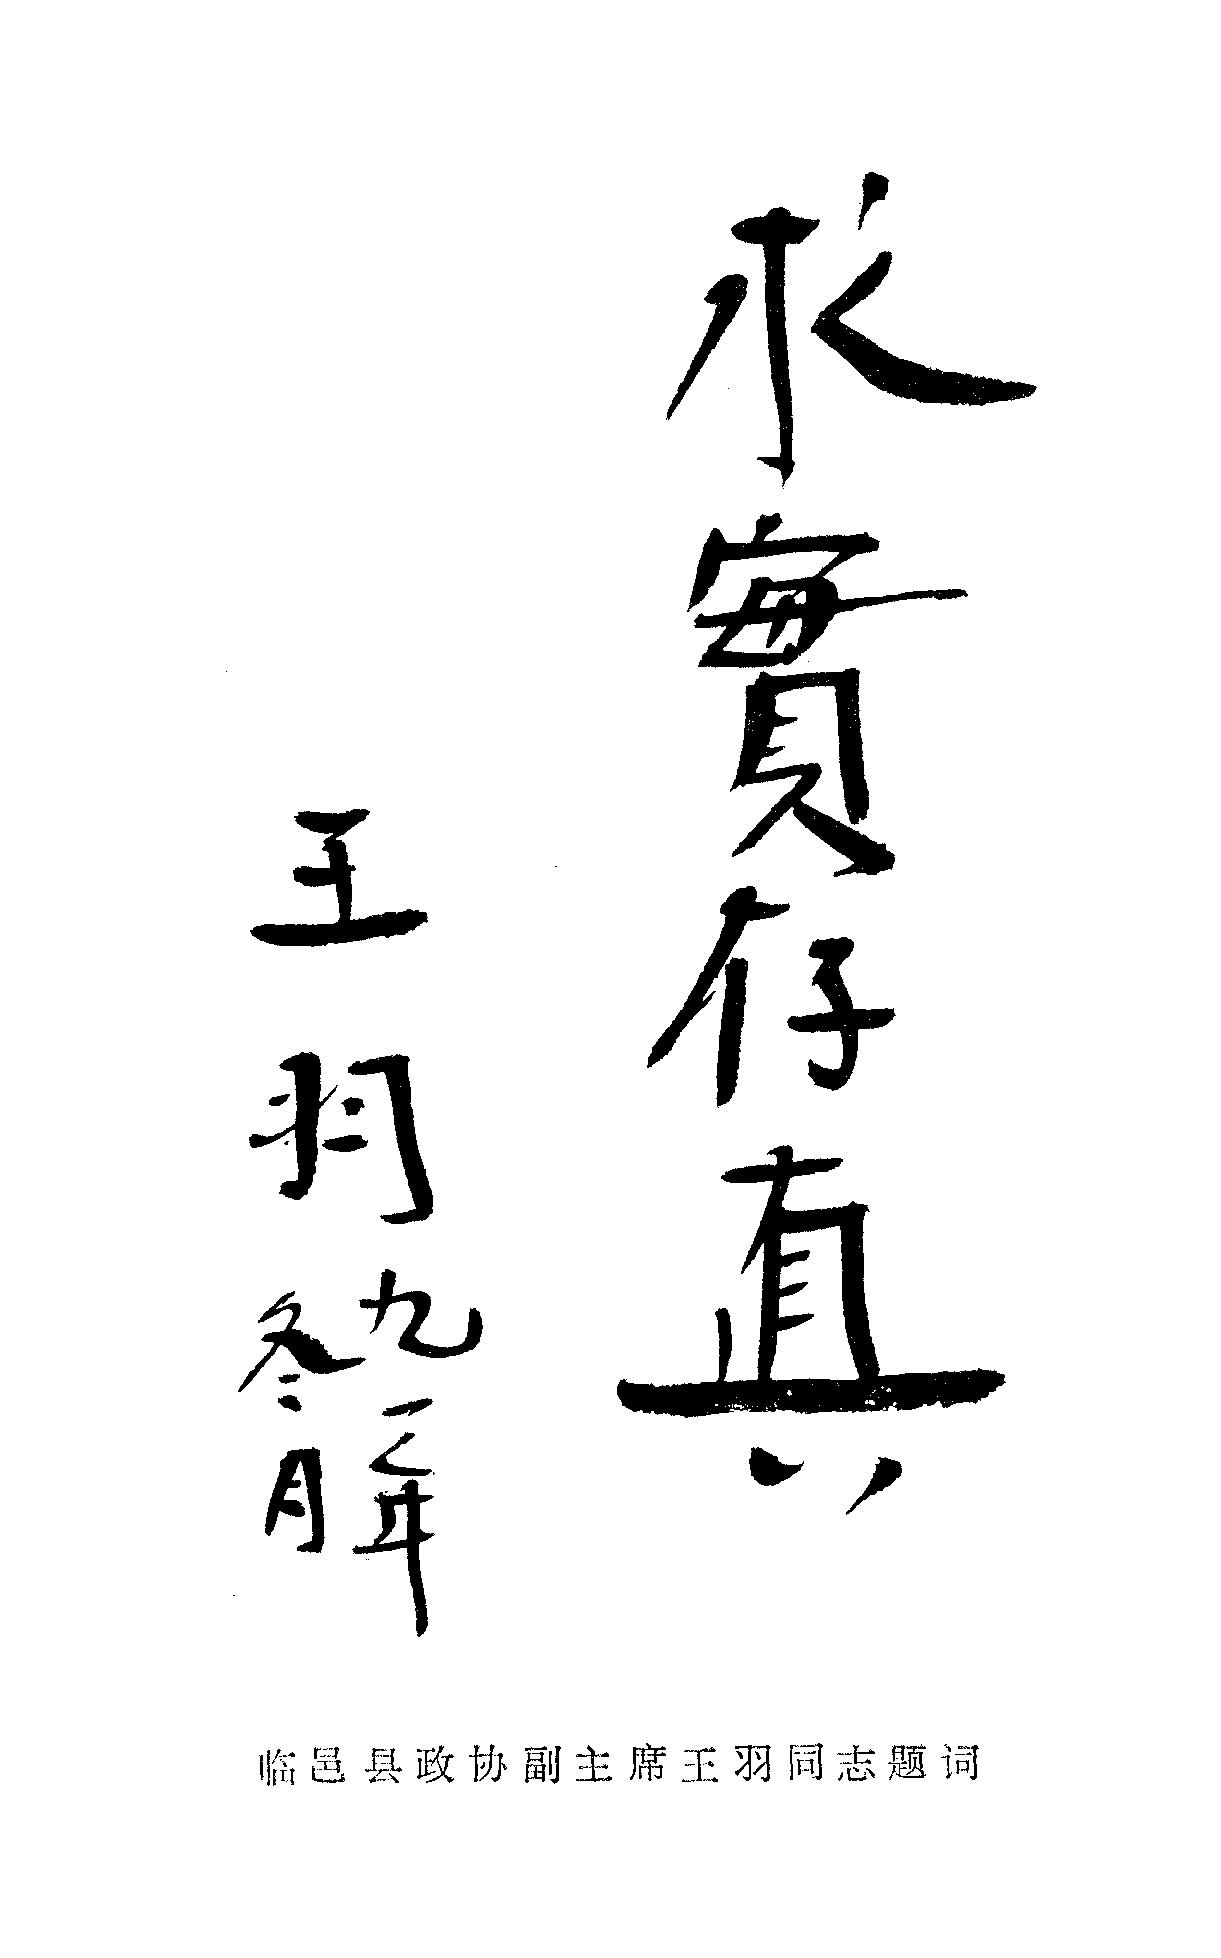 求實存真
王羽
九二年
冬月
临邑县政协副主席王羽同志题词